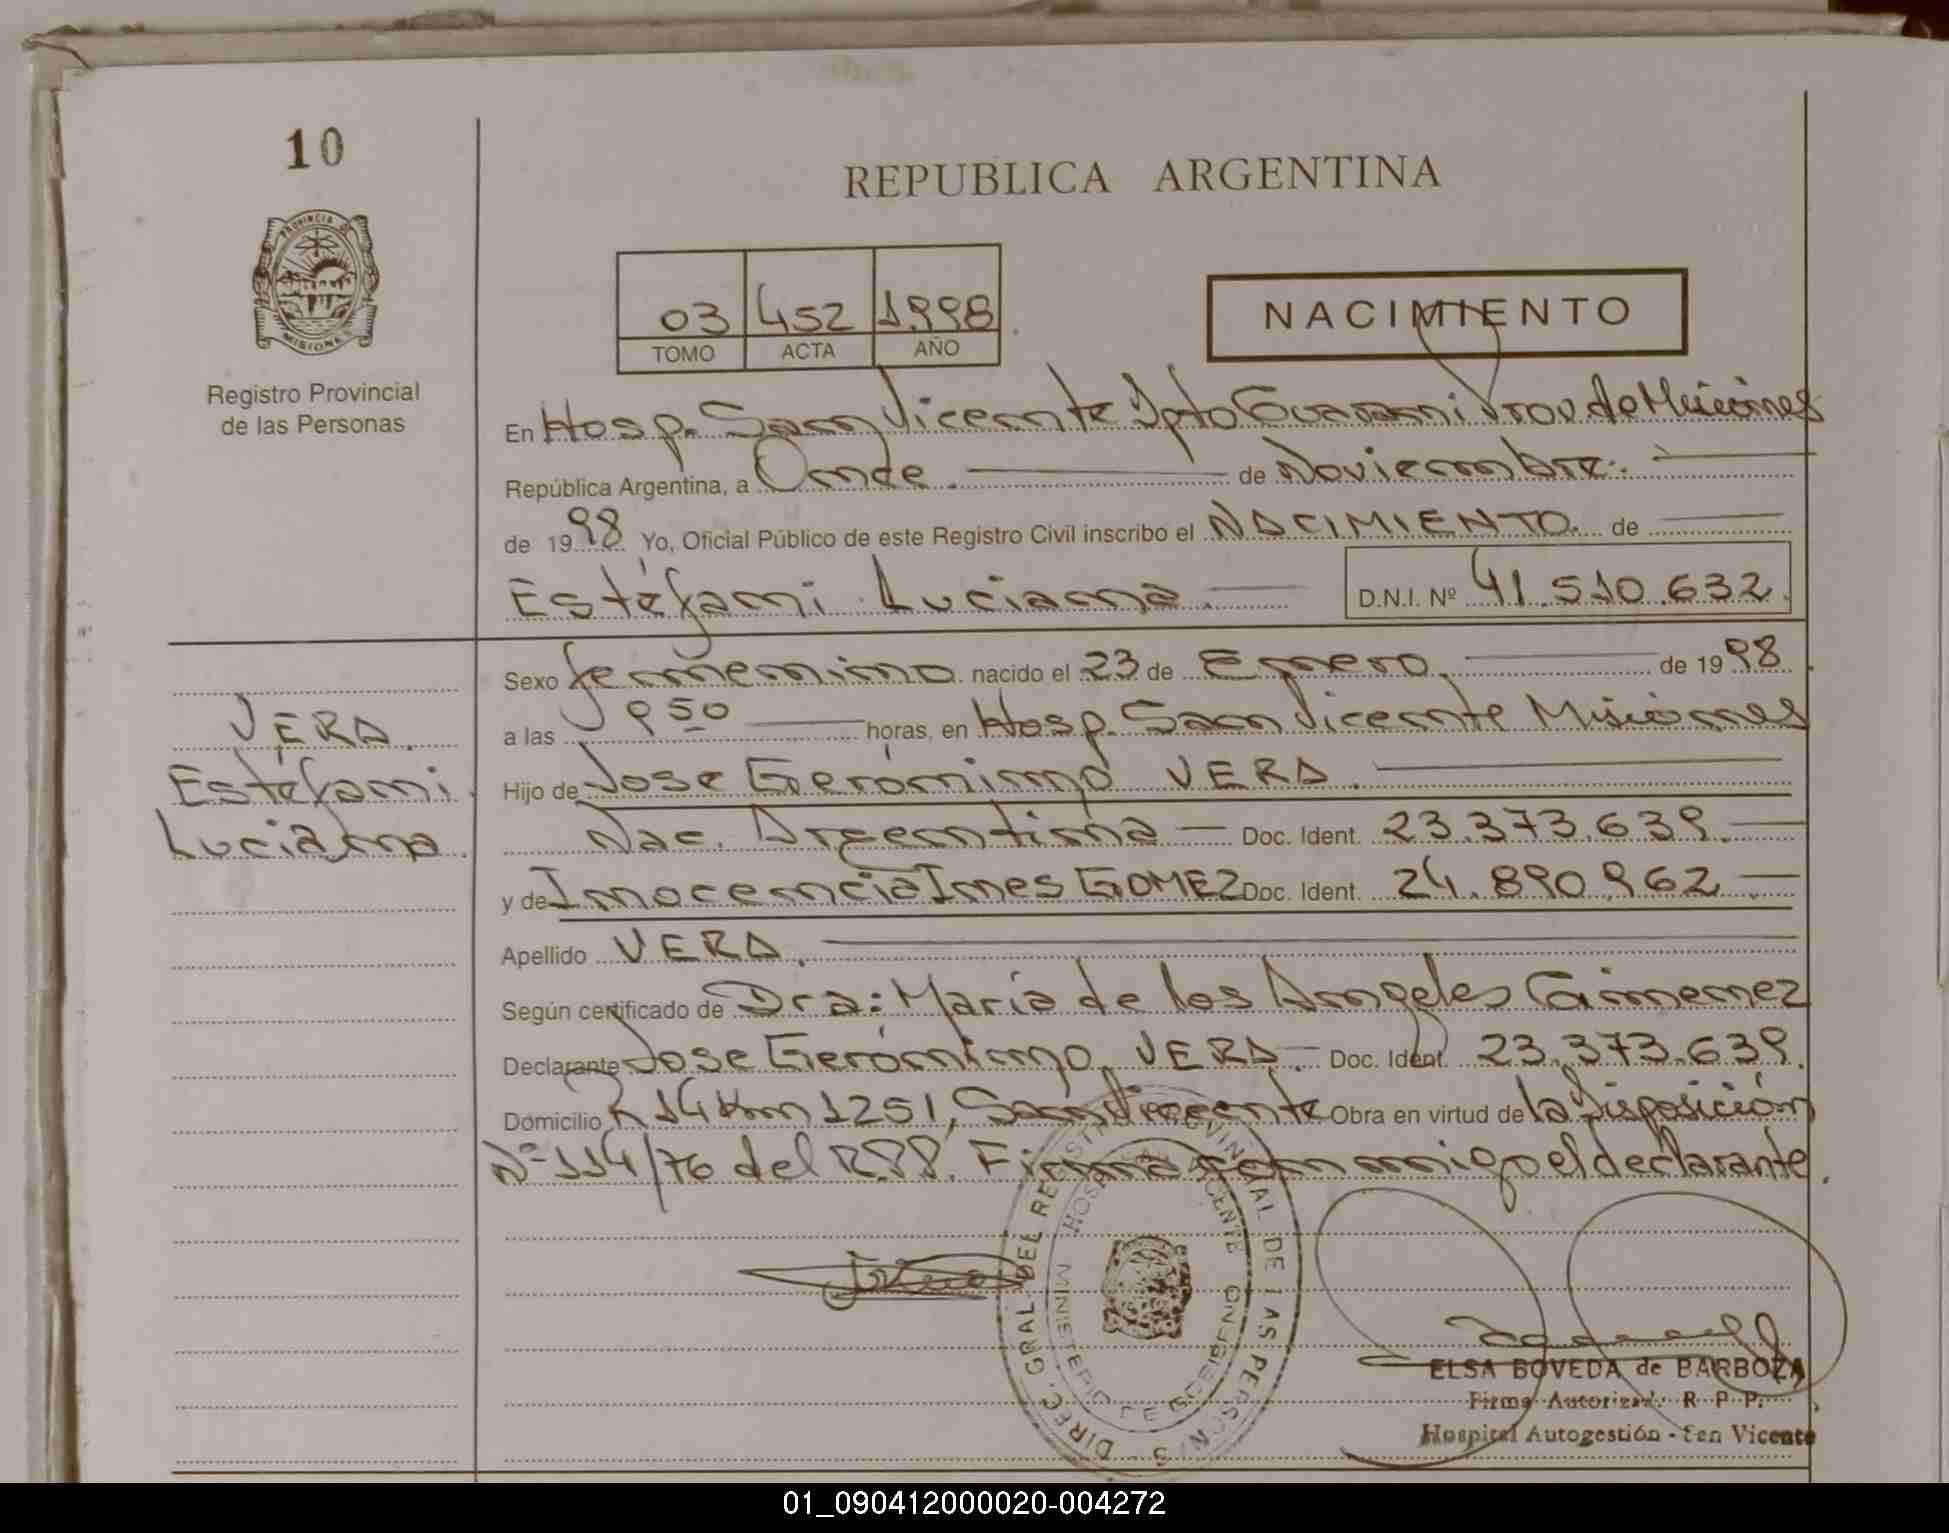 10
PROVINCIA DE
MISIONES
Registro Provincial
de las Personas
REPUBLICA ARGENTINA
03 452 1998
TOMO ACTA AÑO
NACIMIENTO
En Hosp. San Vicente Dpto Guarani Prov. de Misiones
República Argentina, a Once. de Noviembre.
de 1998 Yo, Oficial Público de este Registro Civil inscribo el NACIMIENTO. de
Estéfani Luciana D.N.I. Nº 41.510.632.
Sexo femenino nacido el 23 de Enero. de 1998
a las 9 50 horas, en Hosp. San Vicente Misiones
Hijo de Jose Gerónimo VERA.
Nac. Argentina Doc. Ident. 23.373.639.
y de Inocencia Ines GOMEZ Doc. Ident. 24.890.962
Apellido VERA.
Según certificado de Dra: María de los Angeles Gimenez
Declarante Jose Gerónimo VERA. Doc. Ident. 23.373.639.
Domicilio R 14 Km 1251, San Vicente Obra en virtud de la Disposición
Nº 114/76 del R.P.P. Firma conmigo el declarante.
VERA.
Estéfani
Luciana.
DIREC. GRAL. DEL REGISTRO PROVINCIAL DE LAS PERSONAS
HOSPITAL SAN VICENTE
MINISTERIO DE GOBIERNO
ELSA BOVEDA de BARBOZA
Firma Autorizada R. P. P.
Hospital Autogestión - San Vicente
01_090412000020-004272